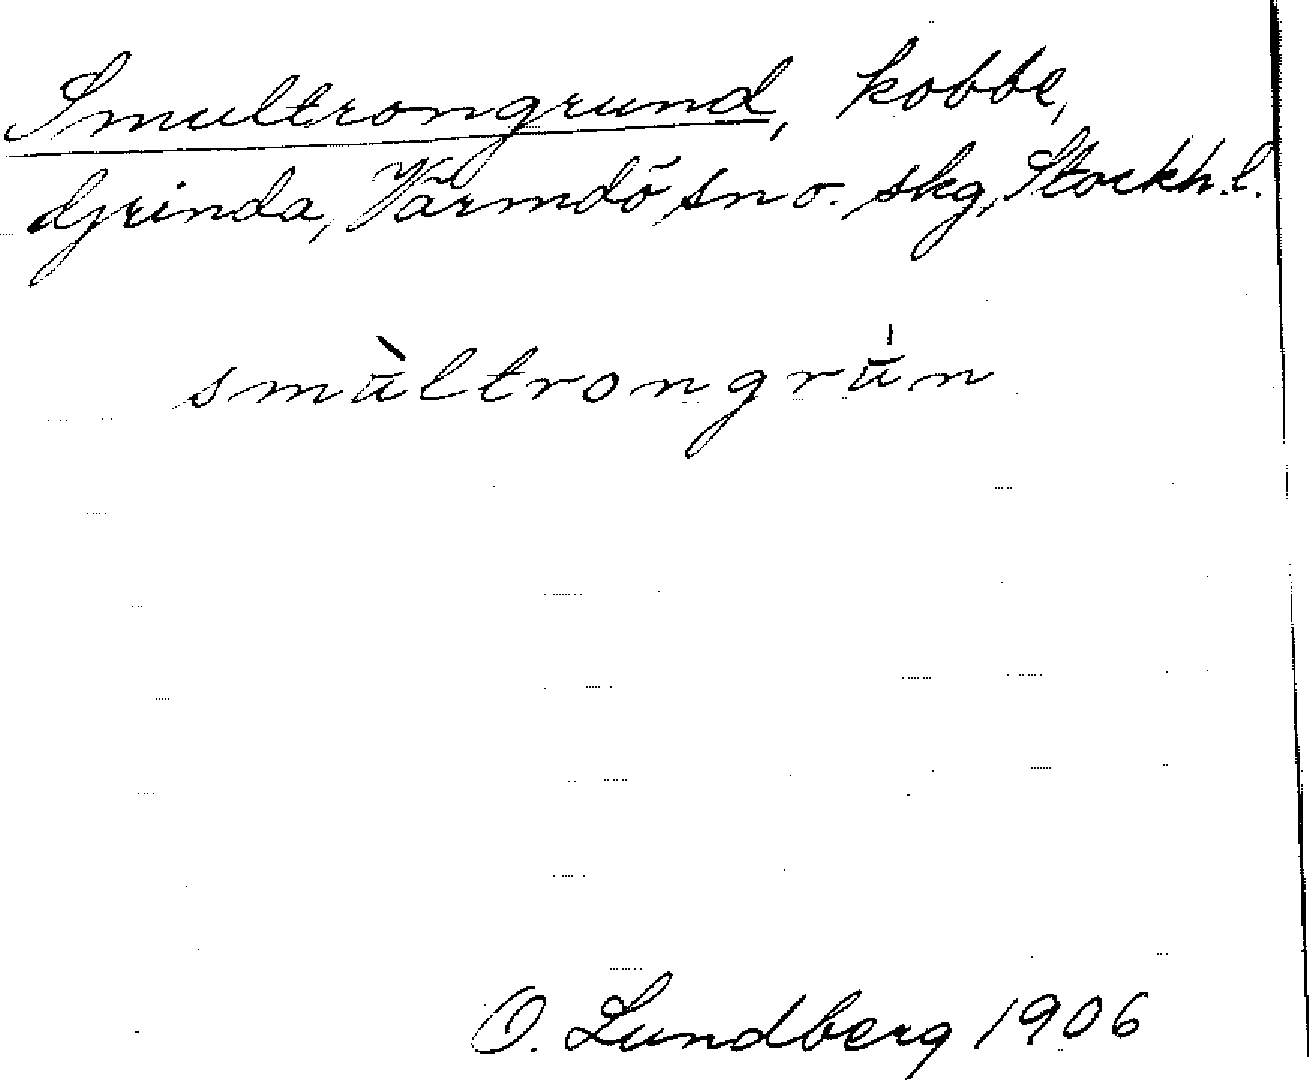 Smultrongrund, kobbe,
Grinda, Värmdö sn o. skg, Stockh. l.
smùltrongrún
O. Lundberg 1906